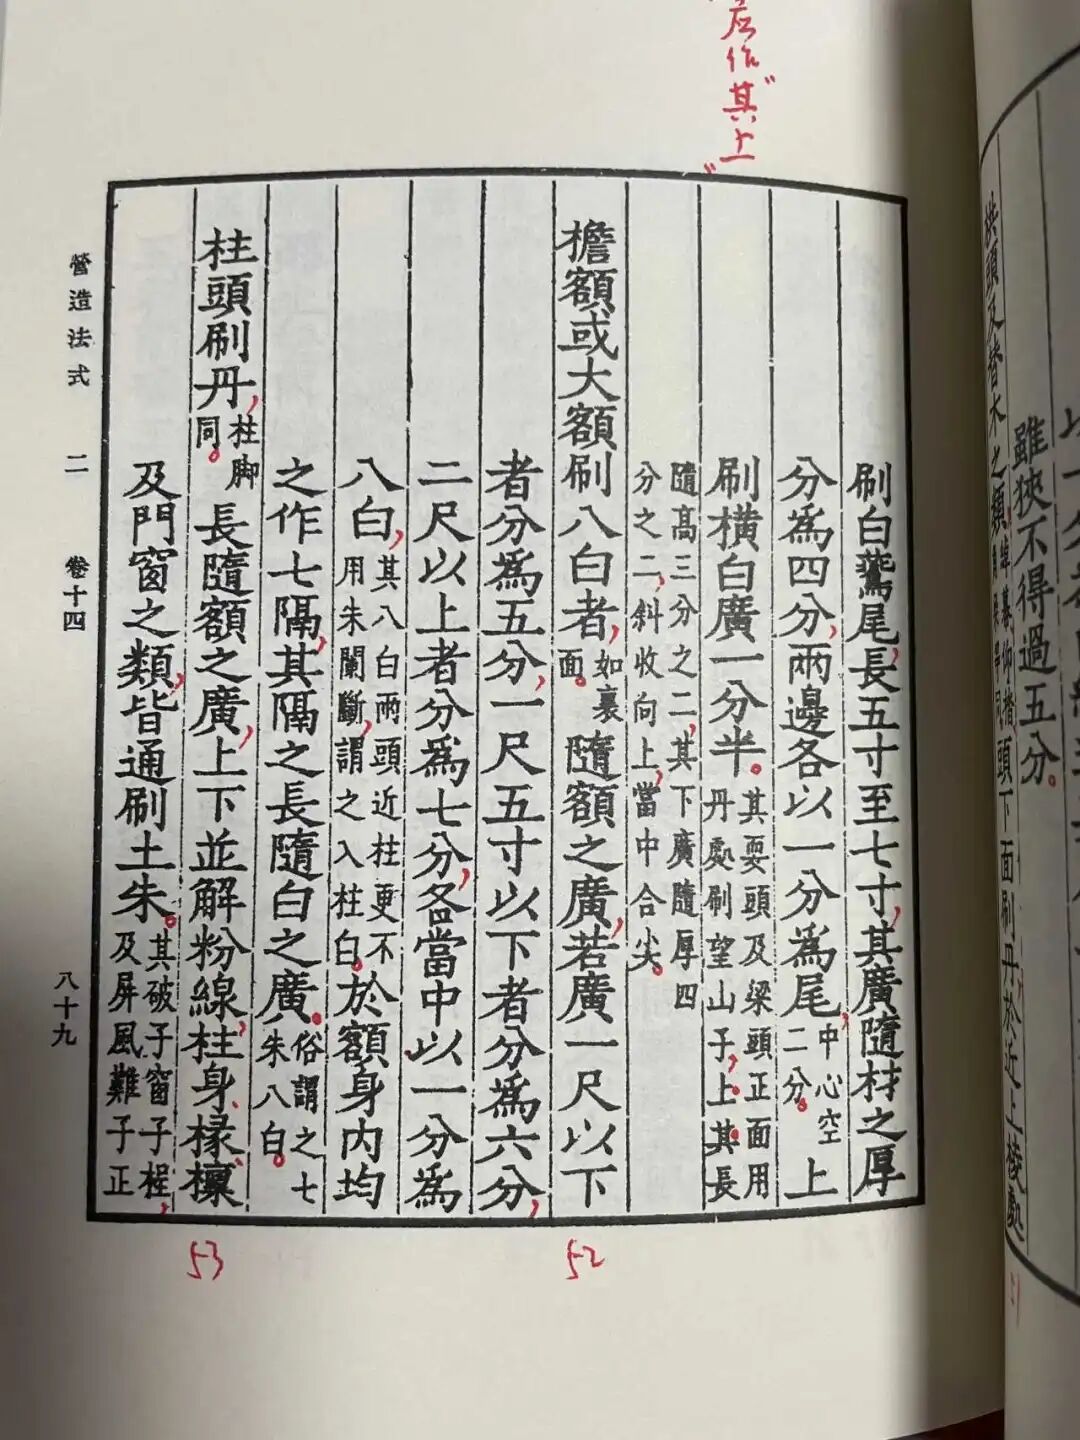 應作"其上"
雖狹不得過五分。
栱頭及替木之類
頭下面刷丹於近上棱處
刷白鷰尾，長五寸至七寸，其廣隨材之厚
分為四分，兩邊各以一分為尾，中心空二分。上
刷橫白廣一分半。其耍頭及梁頭正面用丹處刷望山子，上。其。長
隨高三分之二，其下廣隨厚四分之二，斜收向上，當中合尖。
檐額或大額刷八白者，如裏面。隨額之廣，若廣一尺以下
者分為五分，一尺五寸以下者分為六分，
二尺以上者分為七分，各當中以一分為
八白，其八白兩頭近柱更不用朱闌斷，謂之入柱白。於額身內均
之作七隔，其隔之長隨白之廣。俗謂之七朱八白。
柱頭刷丹，柱脚同。長隨額之廣，上下並解粉線，柱身、椽檁
及門窗之類，皆通刷土朱。其破子窗子桯，及屏風難子正
營造法式 二 卷十四 八十九
52
53
51